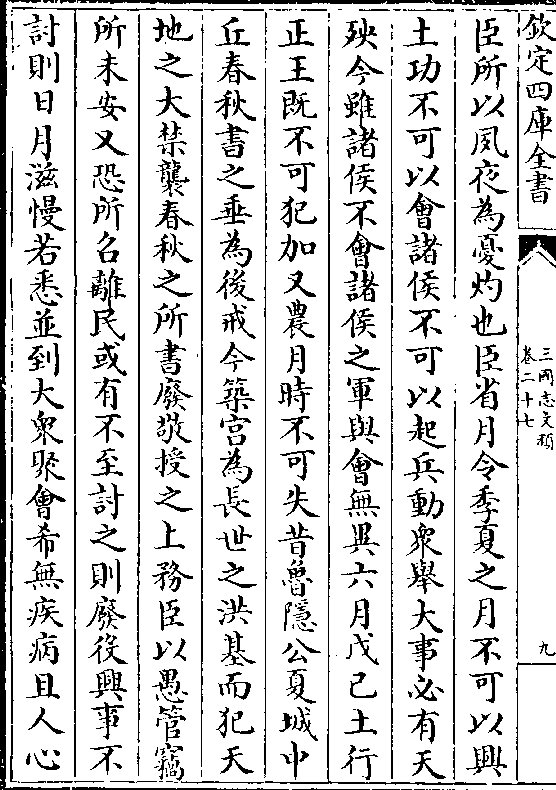 欽定四庫全書
三國志文類
卷二十七
九
臣所以夙夜為憂灼也臣省月令季夏之月不可以興
土功不可以會諸侯不可以起兵動衆舉大事必有天
殃今雖諸侯不會諸侯之軍與會無異六月戊己土行
正王既不可犯加又農月時不可失昔魯隱公夏城中
丘春秋書之垂為後戒今築宮為長世之洪基而犯天
地之大禁襲春秋之所書廢敬授之上務臣以愚管竊
所未安又恐所召離民或有不至討之則廢役興事不
討則日月滋慢若悉並到大衆聚會希無疾病且人心